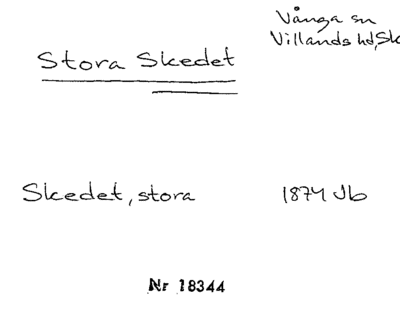 Vånga sn
Villands hd, Sk
Stora Skedet
Skedet, stora 1874 Jb
Nr 18344